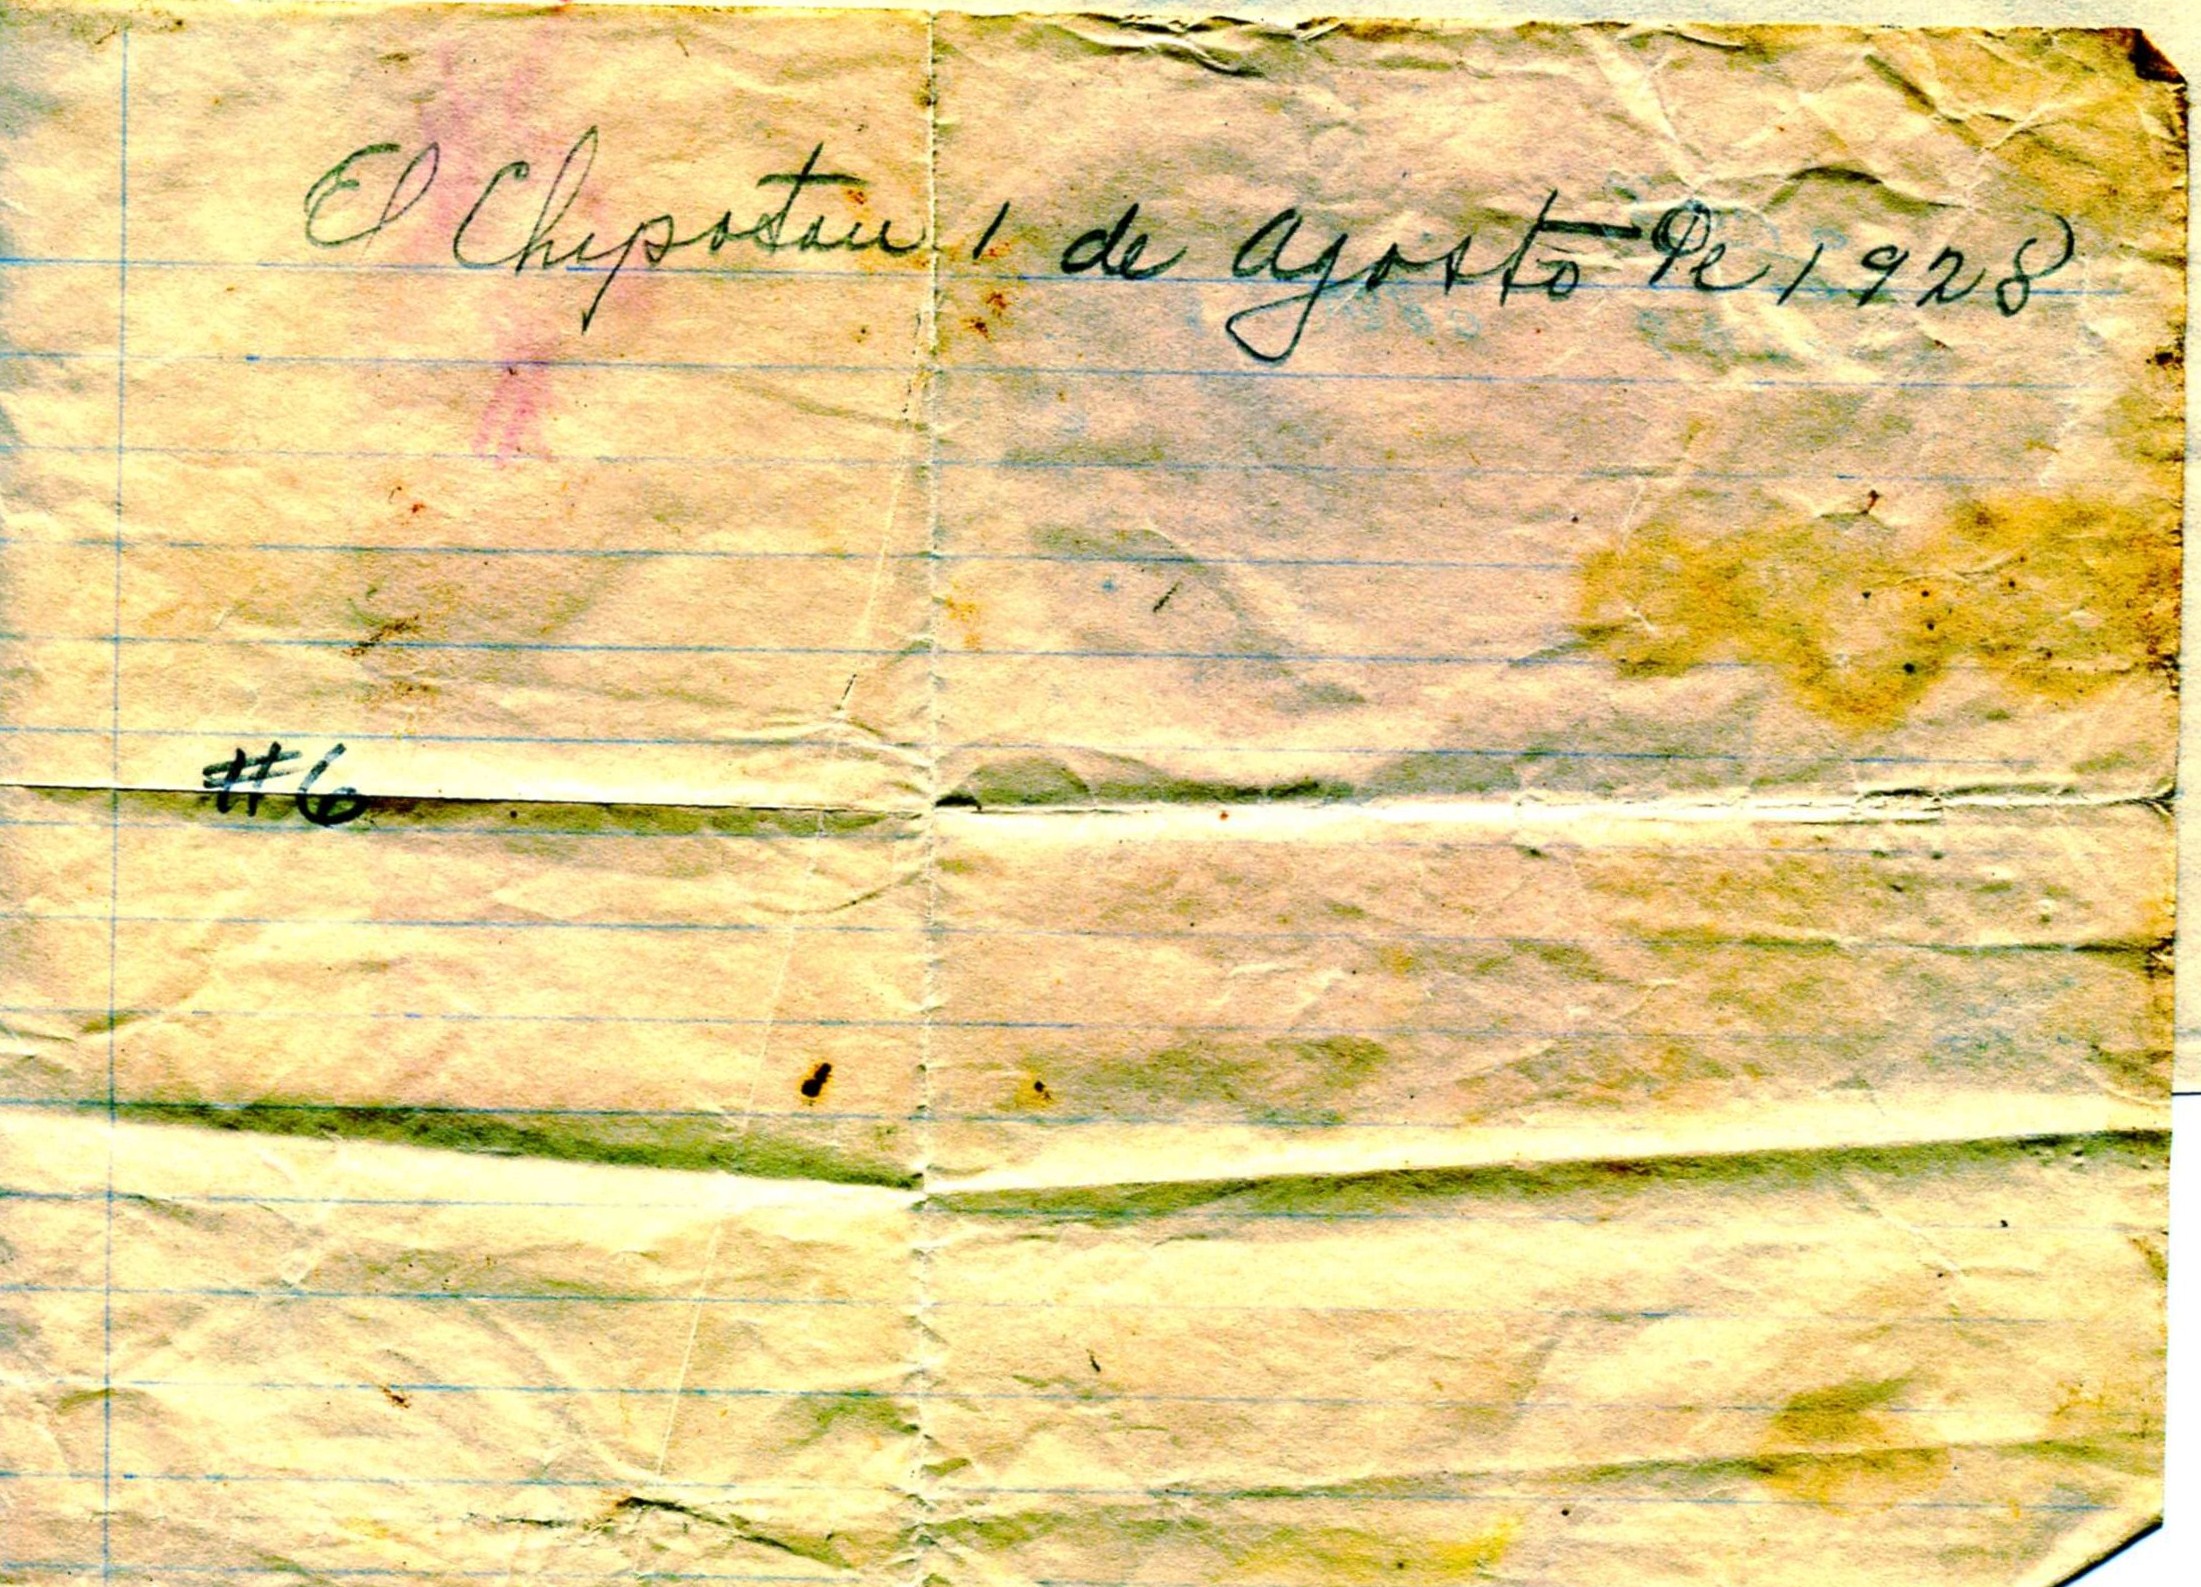 El Chipotau 1 de Agosto De 1928
#6